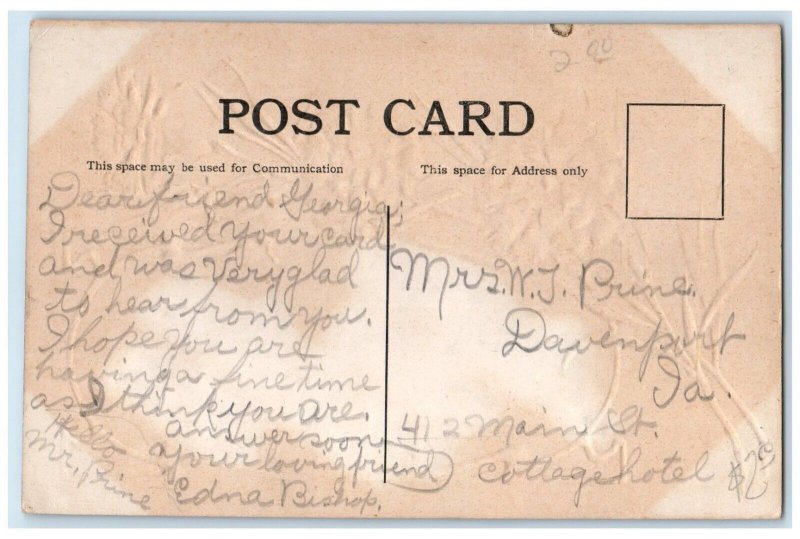 2 00
POST CARD
This space may be used for Communication
This space for Address only
Dear friend Georgia;
I received your card
and was very glad
to hear from you.
I hope you are
having a fine time
as I think you are.
answer soon
your loving friend
Edna Bishop.
Hello
Mr. Prine
Mrs. W. J. Prine.
Davenport
Ia.
412 Main St.
cottage hotel